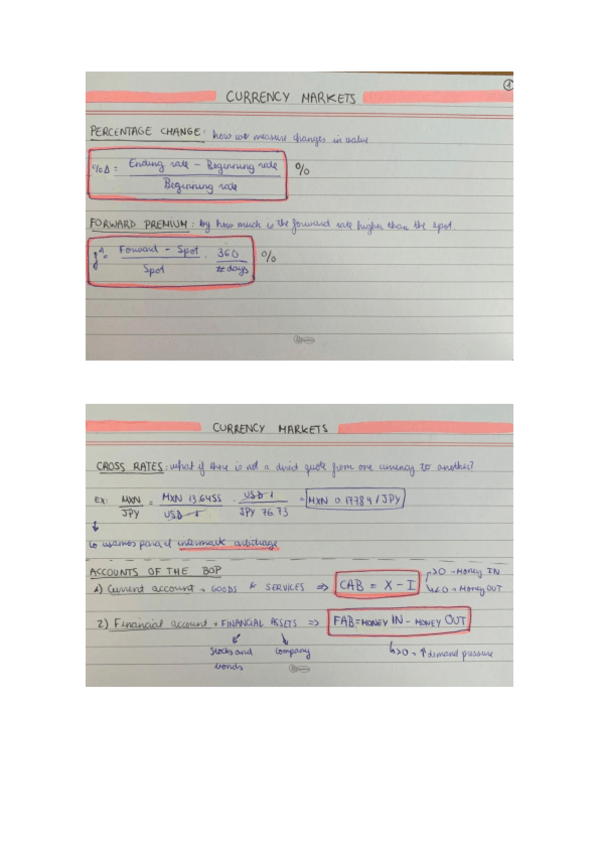 1
CURRENCY MARKETS
PERCENTAGE CHANGE: how we measure changes in value
%Δ = Ending rate - Beginning rate / Beginning rate %
FORWARD PREMIUM: by how much is the forward rate higher than the spot.
= Forward - Spot / Spot · 360 / # days %
CURRENCY MARKETS
CROSS RATES: what if there is not a direct quote from one currency to another?
EX: MXN / JPY = MXN 13.6455 / USD 1 · USD 1 / JPY 76.73 = MXN 0.17784 / JPY
↳ usamos para el intermark arbitrage
ACCOUNTS OF THE BOP
1) Current account → GOODS & SERVICES ⇒ CAB = X - I
>0 → Money IN
<0 → Money OUT
2) Financial account → FINANCIAL ASSETS ⇒ FAB = MONEY IN - MONEY OUT
Stocks and bonds
Company
↳ >0 → ↑ demand pressure